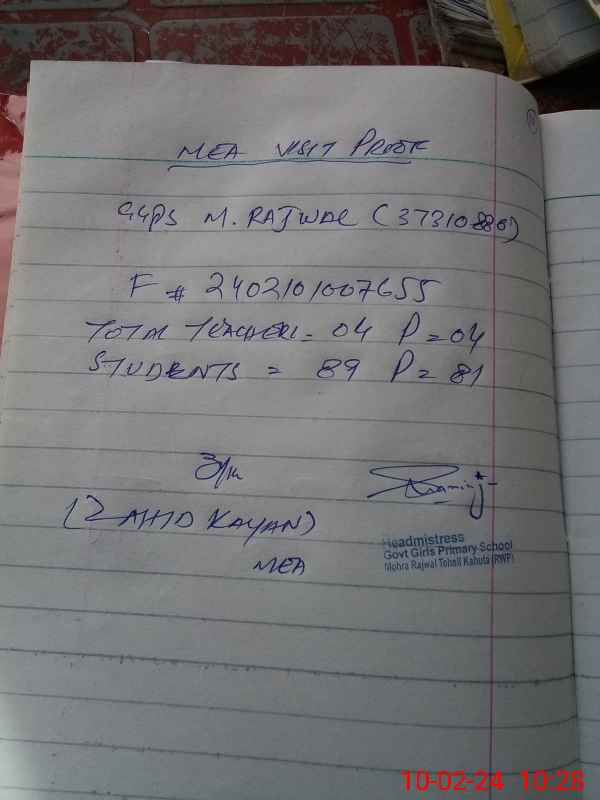 MEA VISIT PROOF
GGPS M. RAJWAL (37310886)
F # 2402101007655
TOTAL TEACHER = 04 P = 04
STUDENTS = 89 P = 81
(ZAHID KAYAN)
MEA
Headmistress
Govt Girls Primary School
Mohra Rajwal Tehsil Kahuta (RWP)
10-02-24 10:28